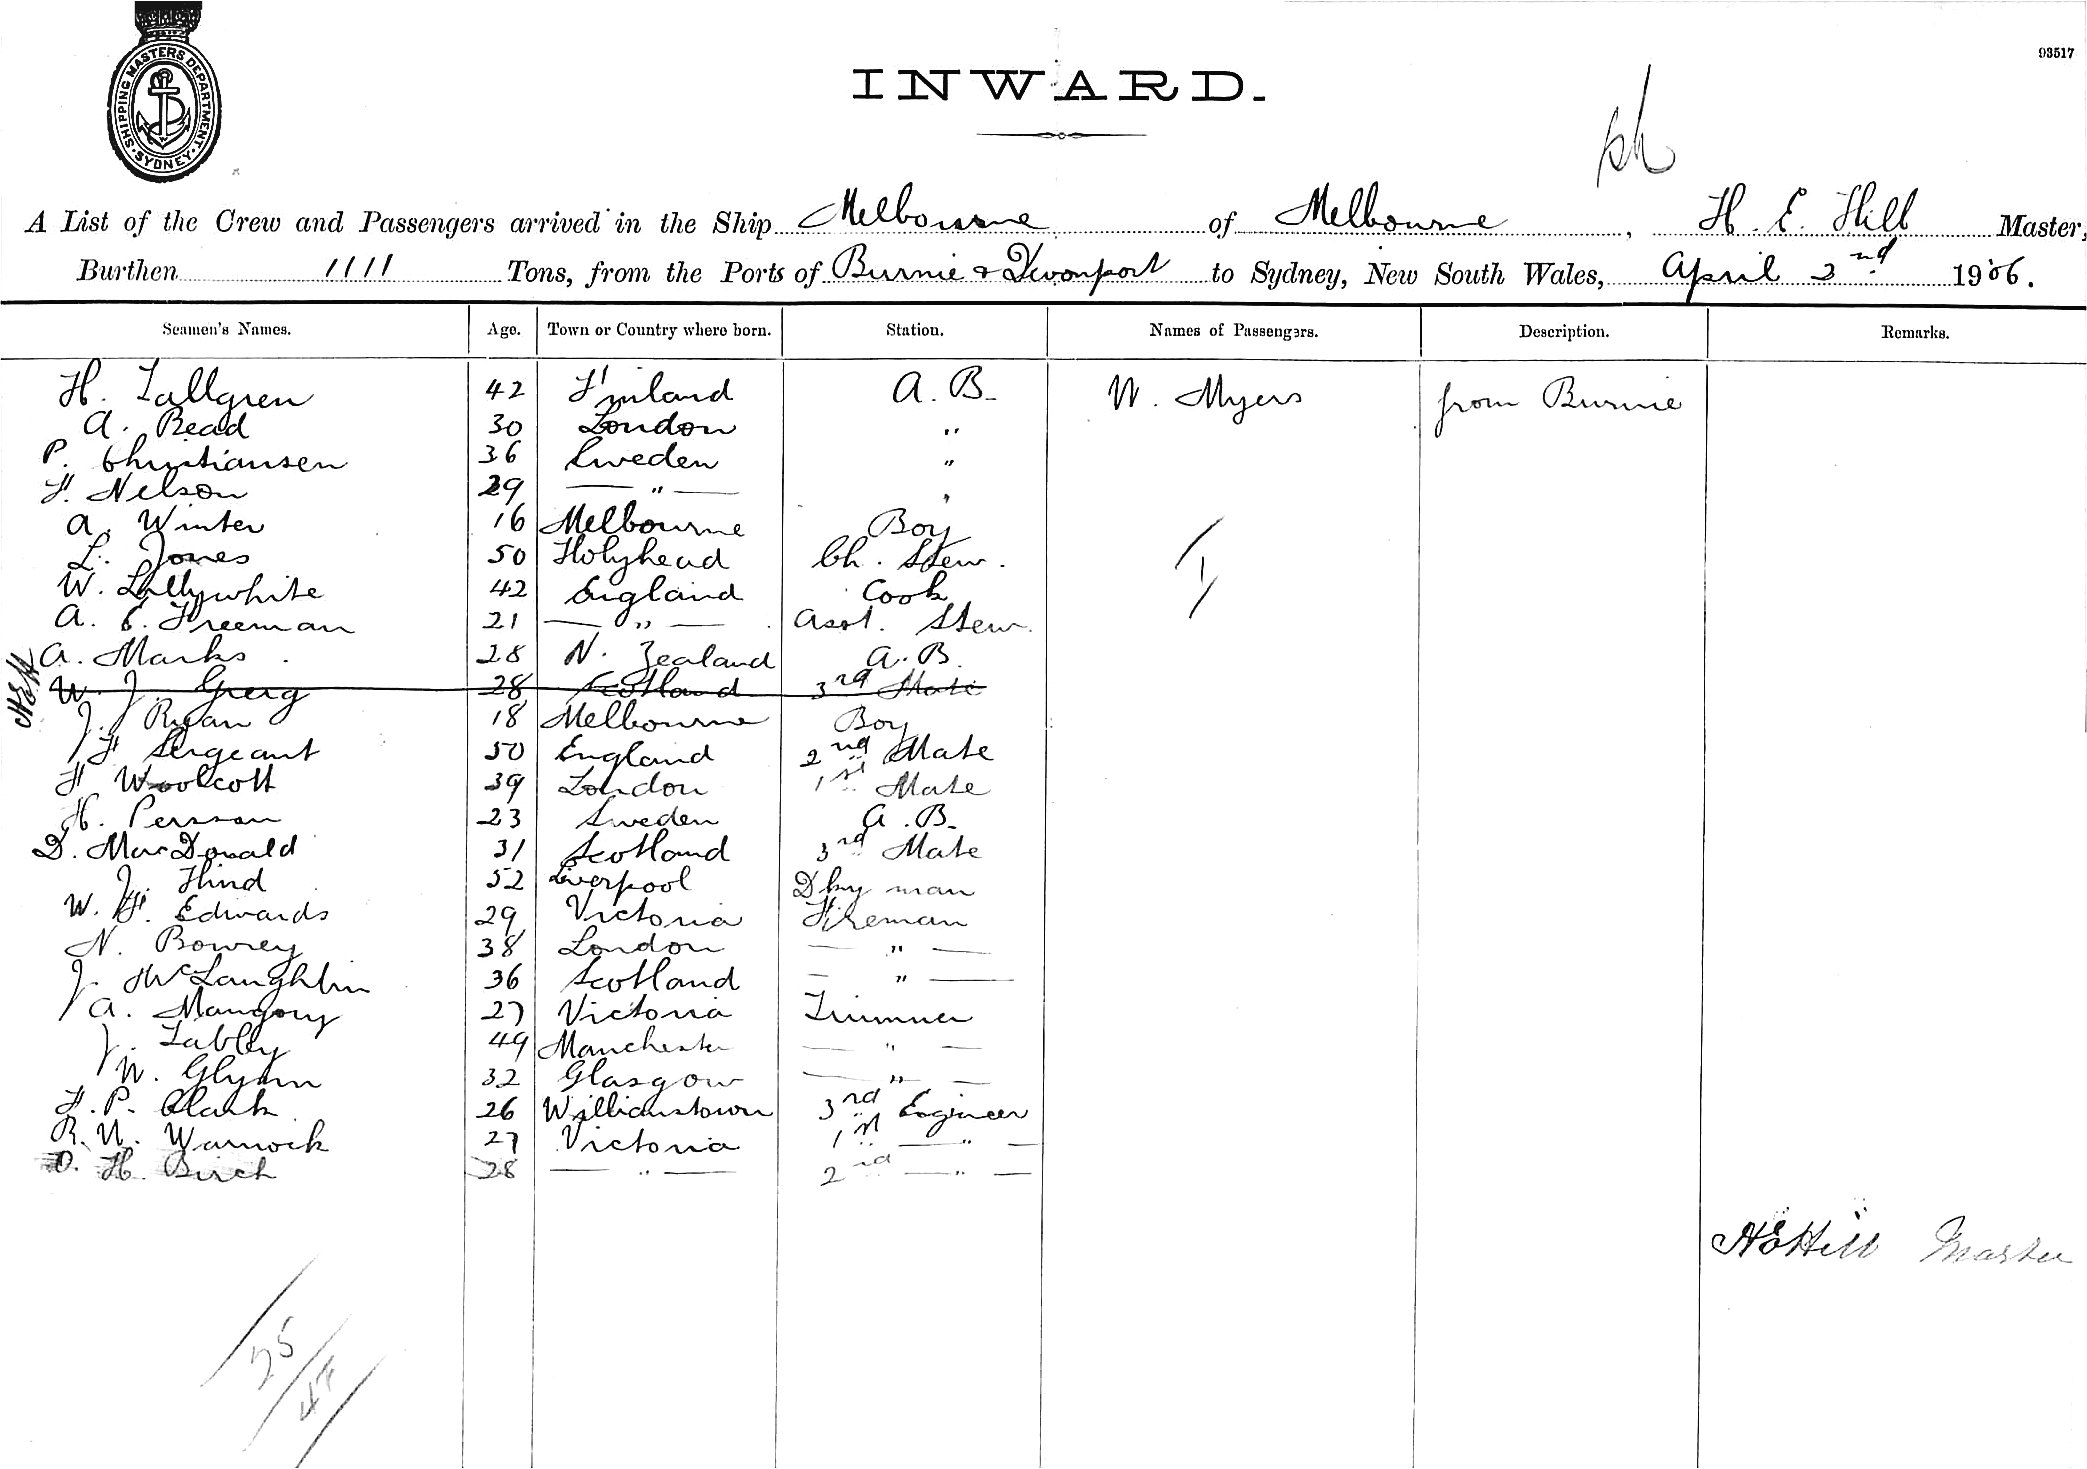 SHIPPING MASTERS DEPARTMENT · SYDNEY ·
93517
INWARD.
A List of the Crew and Passengers arrived in the Ship Melbourne of Melbourne, H. E. Hill Master,
Burthen 1111 Tons, from the Ports of Burnie & Devonport to Sydney, New South Wales, April 2nd 1906.
Seamen's Names. Age. Town or Country where born. Station. Names of Passengers. Description. Remarks.
H. Tallgren 42 Finland A.B. W. Myers from Burnie
A. Read 30 London "
P. Christiansen 36 Sweden "
F. Nelson 29 — " — "
A. Winter 16 Melbourne Boy
L. Jones 50 Holyhead Ch. Stew.
W. Lillywhite 42 England Cook
A. E. Freeman 21 — " — Asst. Stew.
A. Marks 28 N. Zealand A.B.
HEH W. J. Greig 28 Scotland 3rd Mate
J. Ryan 18 Melbourne Boy
F Sergeant 50 England 2nd Mate
F Woolcott 39 London 1st Mate
H. Persson 23 Sweden A.B.
D. MacDonald 31 Scotland 3rd Mate
J. Hind 52 Liverpool Dky man
W. H. Edwards 29 Victoria Fireman
N. Bowrey 38 London — " —
J. McLaughlin 36 Scotland — " —
A. Mangony 27 Victoria Trimmer
J. Tabley 49 Manchester — " —
W. Glynn 32 Glasgow — " —
F. P. Clark 26 Williamstown 3rd Engineer
R. N. Warnock 27 Victoria 1st — " —
O. H. Birch 28 — " — 2nd — " —
HEHill Master
25